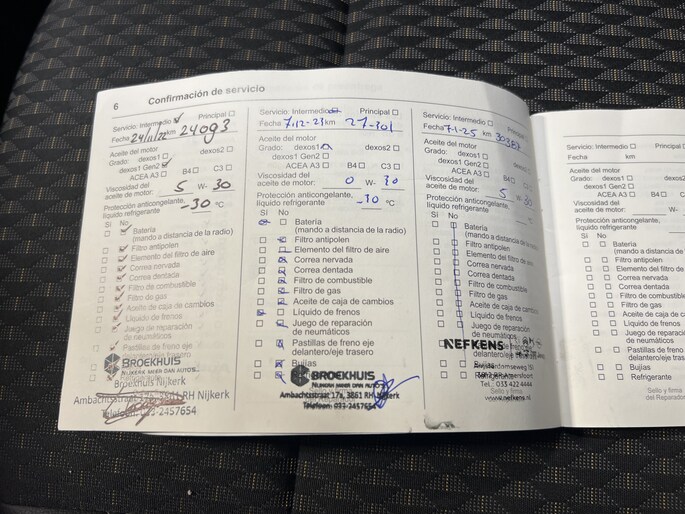 6 Confirmación de servicio
Servicio: Intermedio ✓ Principal ☐
Fecha 24/11/22 km 24093
Aceite del motor
Grado: dexos1 ☐ dexos2 ☐
dexos1 Gen2 ☑
ACEA A3 ☐ B4 ☐ C3 ☐
Viscosidad del
aceite de motor: 5 W- 30
Protección anticongelante,
líquido refrigerante -30 °C
Sí No
Batería
(mando a distancia de la radio)
Filtro antipolen
Elemento del filtro de aire
Correa nervada
Correa dentada
Filtro de combustible
Filtro de gas
Aceite de caja de cambios
Líquido de frenos
Juego de reparación
de neumáticos
Pastillas de freno eje
BROEKHUIS
NIJKERK. MEER DAN AUTO'S.
Broekhuis Nijkerk
Ambachtsstraat 17a, 3861 RH Nijkerk
Telefoon: 033-2457654
Servicio: Intermedio Principal ☐
Fecha 7-12-23 km 27-301
Aceite del motor
Grado: dexos1 dexos2 ☐
dexos1 Gen2 ☐
ACEA A3 ☐ B4 ☐ C3 ☐
Viscosidad del
aceite de motor: 0 W- 30
Protección anticongelante,
líquido refrigerante -30 °C
Sí No
Batería
(mando a distancia de la radio)
Filtro antipolen
Elemento del filtro de aire
Correa nervada
Correa dentada
Filtro de combustible
Filtro de gas
Aceite de caja de cambios
Líquido de frenos
Juego de reparación
de neumáticos
Pastillas de freno eje
delantero/eje trasero
Bujías
BROEKHUIS
NIJKERK MEER DAN AUTO'S
Ambachtsstraat 17a, 3861 RH Nijkerk
Telefoon: 033-2457654
Servicio: Intermedio ☐ Principal ☐
Fecha 7-1-25 km
Aceite del motor
Grado: dexos1 ☐ dexos2 ☐
dexos1 Gen2
ACEA A3 ☐ B4 ☐
Viscosidad del
aceite de motor: 5 W- 30
Protección anticongelante,
líquido refrigerante °C
Sí No
Batería
(mando a distancia de la
Filtro antipolen
Elemento del filtro de
Correa nervada
Correa dentada
Filtro de combustible
Filtro de gas
Aceite de caja de
Líquido de frenos
Juego de reparación
de neumáticos
NEFKENS
delantero/eje trasero
Tel.: 033 422 4444
Sello y firma
www.nefkens.nl
Servicio: Intermedio ☐
Fecha km
Aceite del motor
Grado: dexos1 ☐
dexos1 Gen2 ☐
ACEA A3 ☐ B4
Viscosidad del
aceite de motor: W-
Protección anticongelante,
líquido refrigerante
Sí No
☐ ☐ Batería
(mando a distancia de
☐ ☐ Filtro antipolen
☐ ☐ Elemento del filtro de
☐ ☐ Correa nervada
☐ ☐ Correa dentada
☐ ☐ Filtro de combustible
☐ ☐ Filtro de gas
☐ ☐ Aceite de caja de
☐ ☐ Líquido de frenos
☐ ☐ Juego de reparación
de neumáticos
☐ ☐ Pastillas de freno
delantero/eje
☐ ☐ Bujías
☐ ☐ Refrigerante
Sello y
del Reparador